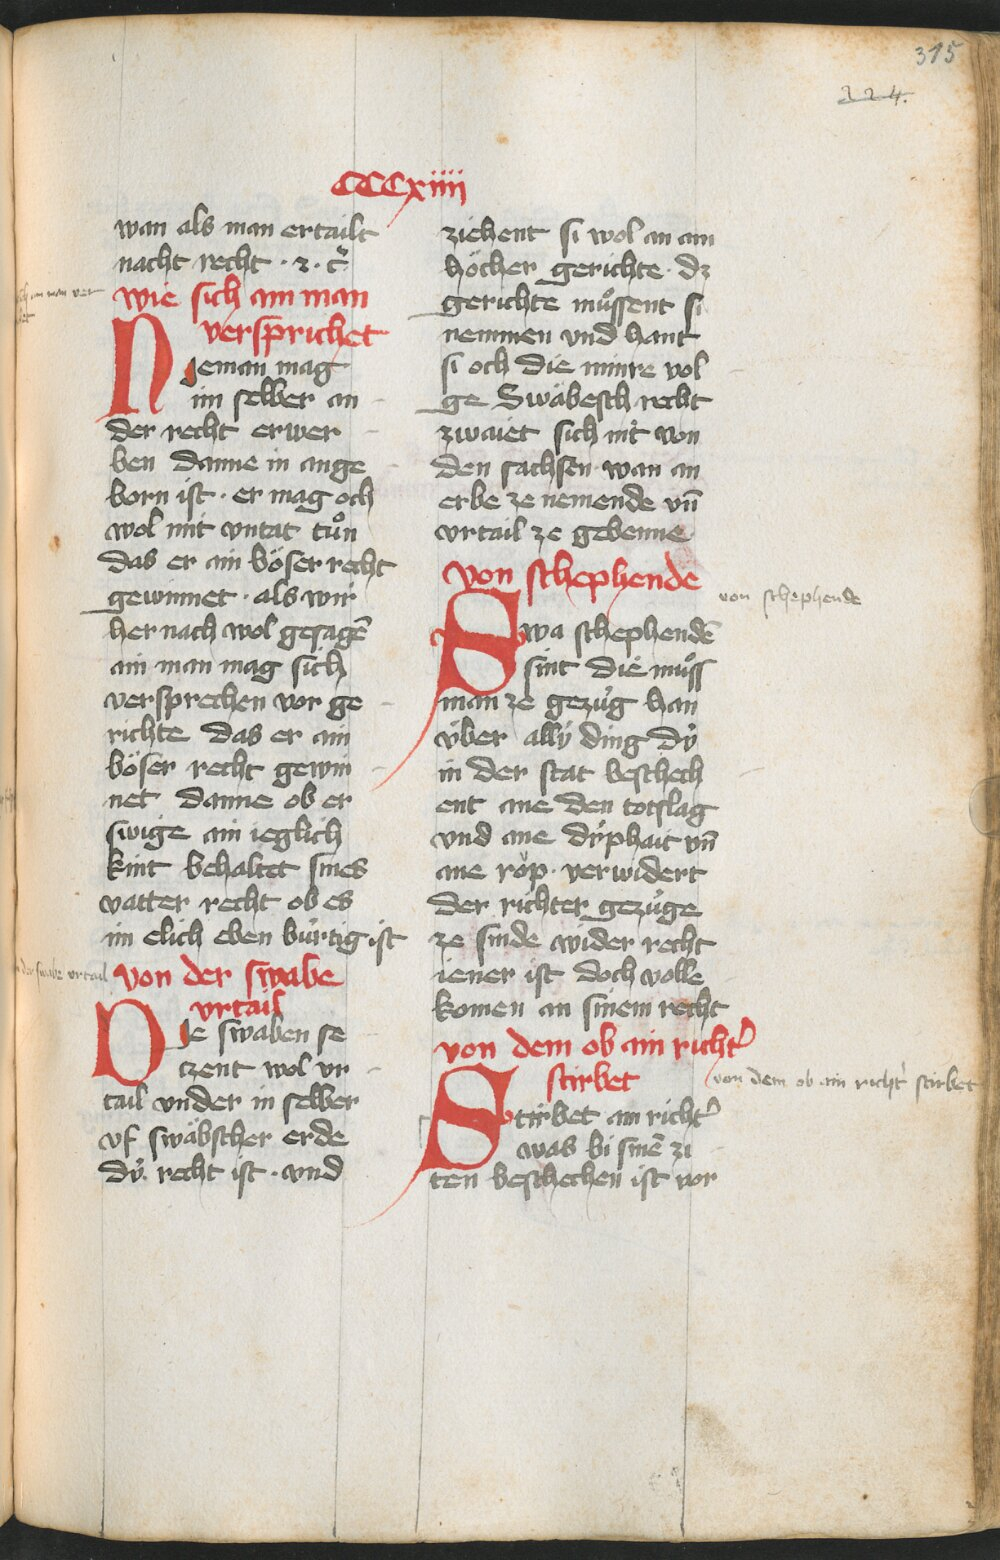 315
224.
CCCxiiii
wan als man ertailt
nacht recht · ⁊ · c̄
wie sich ain man
versprichet
Nieman mag
im selber an
der recht erwer
ben danne in ange
born ist · er mag och
wol mit vntat tuͦn
das er ain böser recht
gewinnet · als wir
her nach wol gesagē
ain man mag sich
versprechen vor ge
richte das er ain
böser recht gewin
net danne ob er
swige ain ieglich
kint behaltet sines
vatter recht ob es
im elich eben bürtig ist
von der swabe
vrtail
Die swaben se
tzent wol vr
tail vnder in selber
vf swäbscher erde
dv̍ recht ist · vnd
ziehent si wol an ain
höcher gerichte · dz
gerichte muͤssent si
nemmen vnd hant
si och die minre vol
ge Swäbesch recht
zwaiet sich nit von
den sachsen wan an
erbe ze nemende vn̄
vrtail ze gebenne
von schephende
Swa schephendē
sint die muͦss
man ze gezu̍g han
v̍ber allv̍ ding dv̍
in der stat beschech
ent ane den totslag
vnd ane dv̍phait vn̄
ane rop · verwidert
der richter gezu̍ge
ze sinde wider recht
iener ist doch volle
komen an sinem recht
von dem ob ain richt᷑
stirbet
Stirbet ain richt᷑
was bi sinē zi
ten beschechen ist vor
von schephende
von dem ob ain richt᷑ stirbet